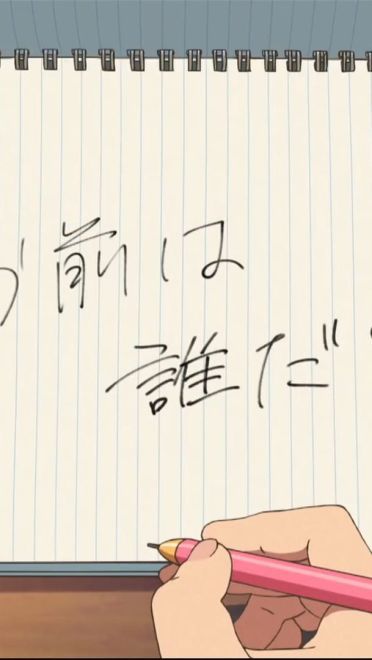 お前は
誰だ